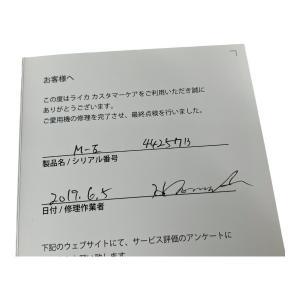 お客様へ
この度はライカ カスタマーケアをご利用いただき誠に
ありがとうございます。
ご愛用機の修理を完了させ、最終点検を行いました。
M-E 4425713
製品名/シリアル番号
2019.6.5
日付/修理作業者
下記のウェブサイトにて、サービス評価のアンケートに